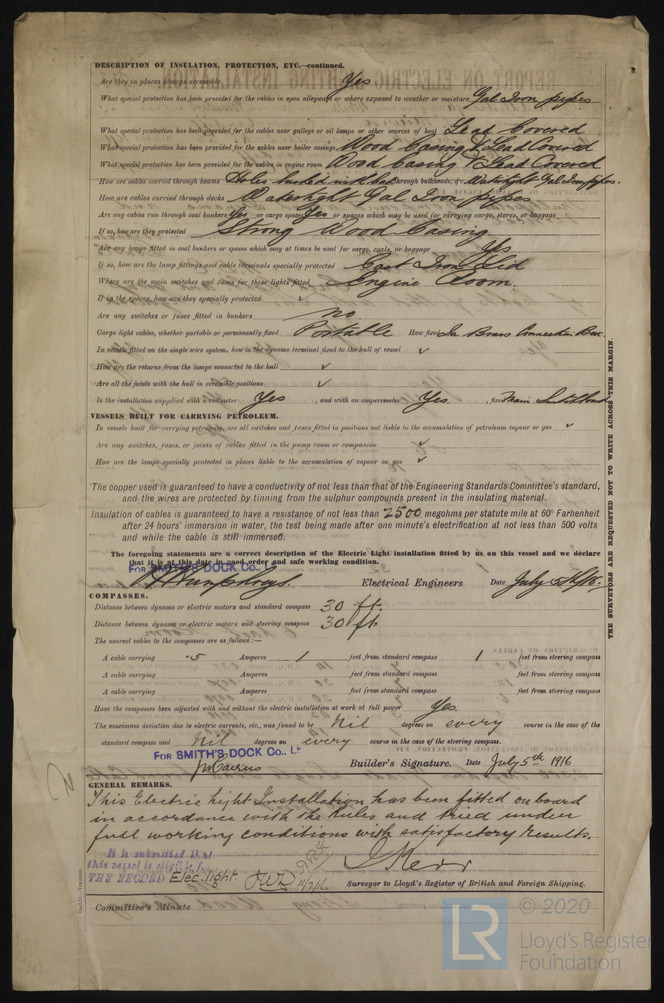 DESCRIPTION OF INSULATION, PROTECTION, ETC.—continued.
Are they in places always accessible Yes
What special protection has been provided for the cables in open alleyways or where exposed to weather or moisture Gal Iron pipes
What special protection has been provided for the cables near galleys or oil lamps or other sources of heat Lead Covered
What special protection has been provided for the cables near boiler casings Wood Casing & Lead Covered
What special protection has been provided for the cables in engine room Wood Casing & Lead Covered
How are cables carried through beams Holes bushed with lead through bulkheads, &c. Watertight Gal Iron pipes.
How are cables carried through decks Watertight Gal Iron pipes
Are any cables run through coal bunkers Yes or cargo spaces Yes or spaces which may be used for carrying cargo, stores, or baggage
If so, how are they protected Strong Wood Casing
Are any lamps fitted in coal bunkers or spaces which may at times be used for cargo, coals, or baggage Yes
If so, how are the lamp fittings and cable terminals specially protected Cast Iron Lid
Where are the main switches and fuses for these lights fitted Engine Room.
If in the spaces, how are they specially protected ✓
Are any switches or fuses fitted in bunkers no
Cargo light cables, whether portable or permanently fixed Portable How fixed In Brass Connection Box
In vessels fitted on the single wire system, how is the dynamo terminal fixed to the hull of vessel ✓
How are the returns from the lamps connected to the hull ✓
Are all the joints with the hull in accessible positions ✓
Is the installation supplied with a voltmeter Yes, and with an amperemeter Yes, fixed Main Switchboard
VESSELS BUILT FOR CARRYING PETROLEUM.
In vessels built for carrying petroleum, are all switches and fuses fitted in positions not liable to the accumulation of petroleum vapour or gas ✓
Are any switches, fuses, or joints of cables fitted in the pump room or companion ✓
How are the lamps specially protected in places liable to the accumulation of vapour or gas ✓
The copper used is guaranteed to have a conductivity of not less than that of the Engineering Standards Committee's standard,
and the wires are protected by tinning from the sulphur compounds present in the insulating material.
Insulation of cables is guaranteed to have a resistance of not less than 2500 megohms per statute mile at 60° Farhenheit
after 24 hours' immersion in water, the test being made after one minute's electrification at not less than 500 volts
and while the cable is still immersed.
The foregoing statements are a correct description of the Electric Light installation fitted by us on this vessel and we declare
that it is at this date in good order and safe working condition.
FOR SMITH'S DOCK CO.
Humphreys. Electrical Engineers Date July 5th/16.
COMPASSES.
Distance between dynamo or electric motors and standard compass 30 ft.
Distance between dynamo or electric motors and steering compass 30 ft.
The nearest cables to the compasses are as follows:—
A cable carrying .5 Amperes 1 feet from standard compass 1 feet from steering compass
A cable carrying Amperes feet from standard compass feet from steering compass
A cable carrying Amperes feet from standard compass feet from steering compass
Have the compasses been adjusted with and without the electric installation at work at full power Yes.
The maximum deviation due to electric currents, etc., was found to be Nil degrees on every course in the case of the
standard compass and Nil degrees on every course in the case of the steering compass.
FOR SMITH'S DOCK CO., LD
Builder's Signature. Date July 5th 1916
GENERAL REMARKS.
This Electric Light Installation has been fitted on board
in accordance with the Rules and tried under
full working conditions with satisfactory results.
It is submitted that
this vessel is eligible for
THE RECORD Elec. light. JWD 11/7/16
J Kerr
Surveyor to Lloyd's Register of British and Foreign Shipping.
Committee's Minute
THE SURVEYORS ARE REQUESTED NOT TO WRITE ACROSS THIS MARGIN.
LR
© 2020
Lloyd's Register
Foundation